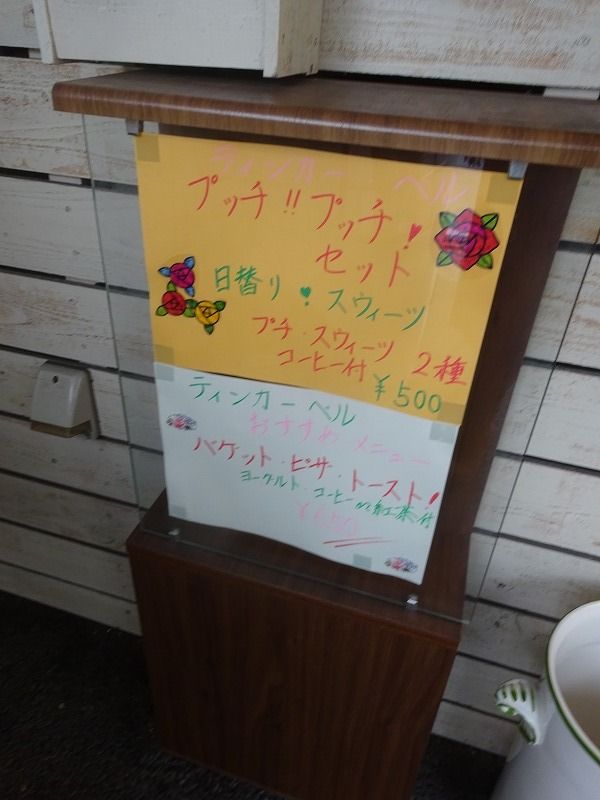 ティンカー ベル
プッチ!! プッチ!
セット
日替り・スウィーツ
プチ・スウィーツ 2種
コーヒー付 ¥500
ティンカー ベル
おすすめ メニュー
バケット・ピザ・トースト!
ヨーグルト・コーヒーor紅茶付